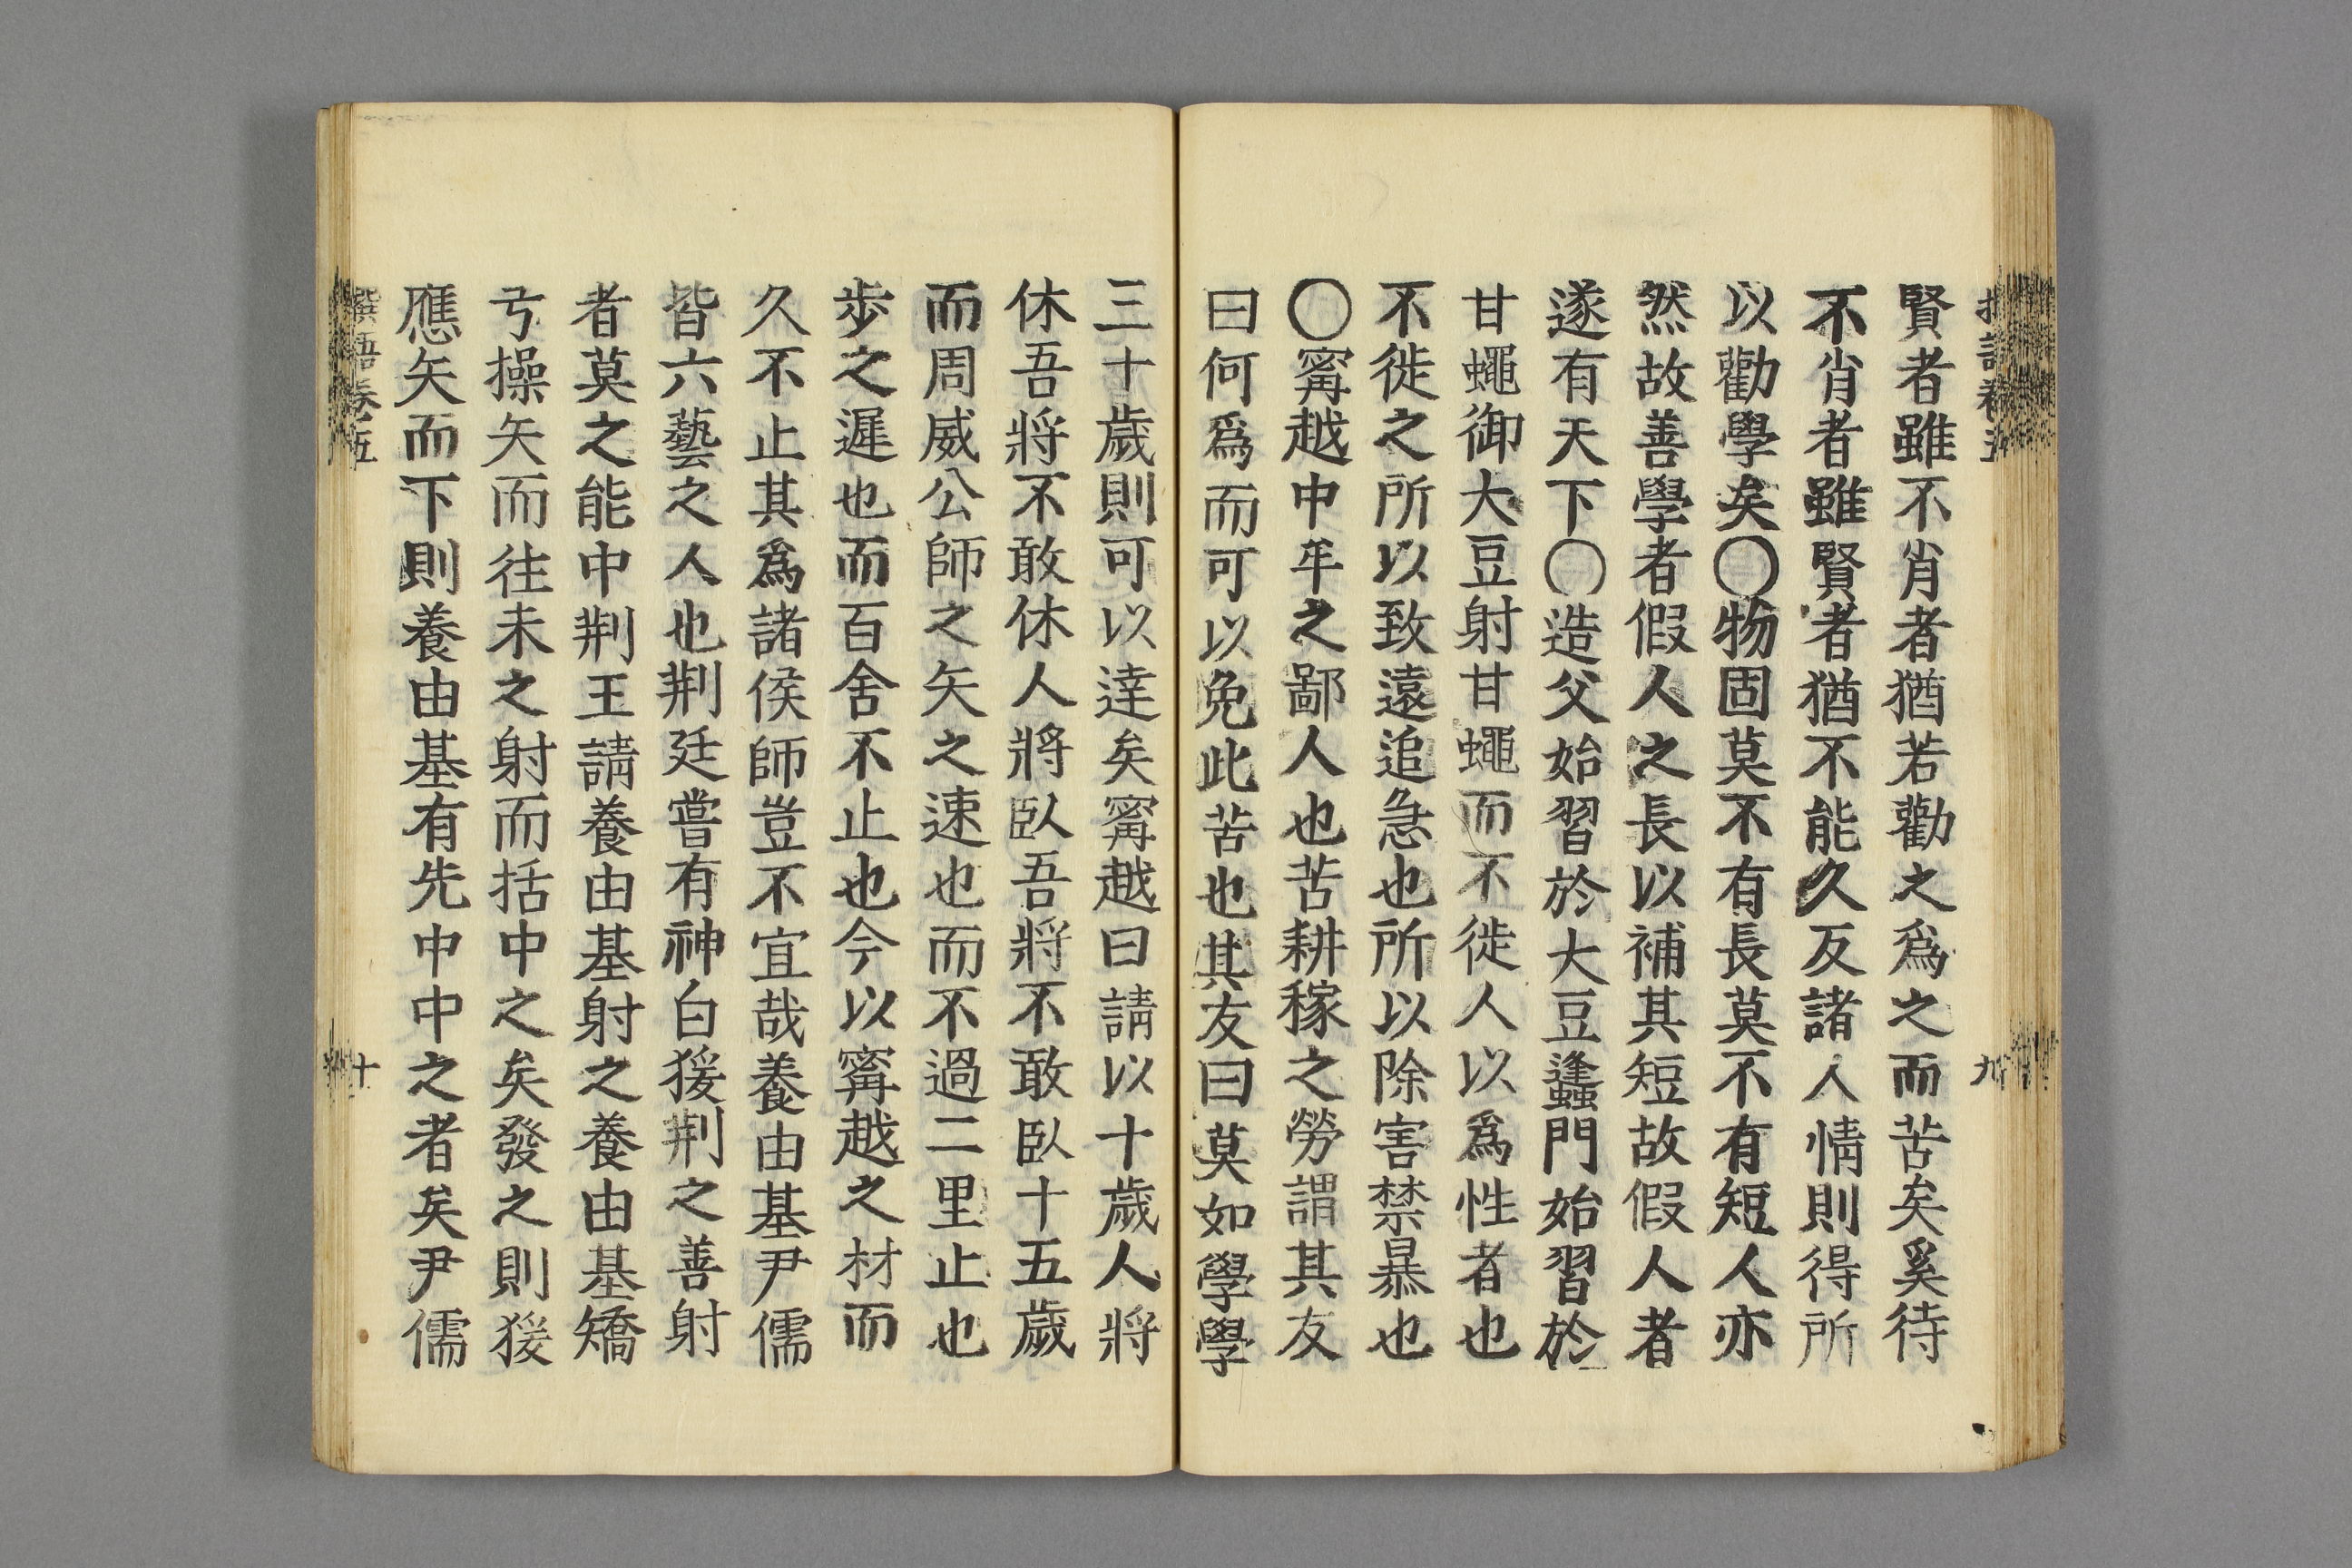 賢者雖不肖者猶若勸之爲之而苦矣奚待
不肖者雖賢者猶不能久反諸人情則得所
以勸學矣〇物固莫不有長莫不有短人亦
然故善學者假人之長以補其短故假人者
遂有天下〇造父始習於大豆蠭門始習於
甘蠅御大豆射甘蠅而不徙人以爲性者也
不徙之所以致遠追急也所以除害禁暴也
〇甯越中牟之鄙人也苦耕稼之勞謂其友
曰何爲而可以免此苦也其友曰莫如學學
三十歲則可以達矣甯越曰請以十歲人將
休吾將不敢休人將臥吾將不敢臥十五歲
而周威公師之矢之速也而不過二里止也
步之遲也而百舍不止也今以甯越之材而
久不止其爲諸侯師豈不宜哉養由基尹儒
皆六藝之人也荆廷嘗有神白猨荆之善射
者莫之能中荆王請養由基射之養由基矯
弓操矢而往未之射而括中之矣發之則猨
應矢而下則養由基有先中中之者矣尹儒
撰語卷五
十